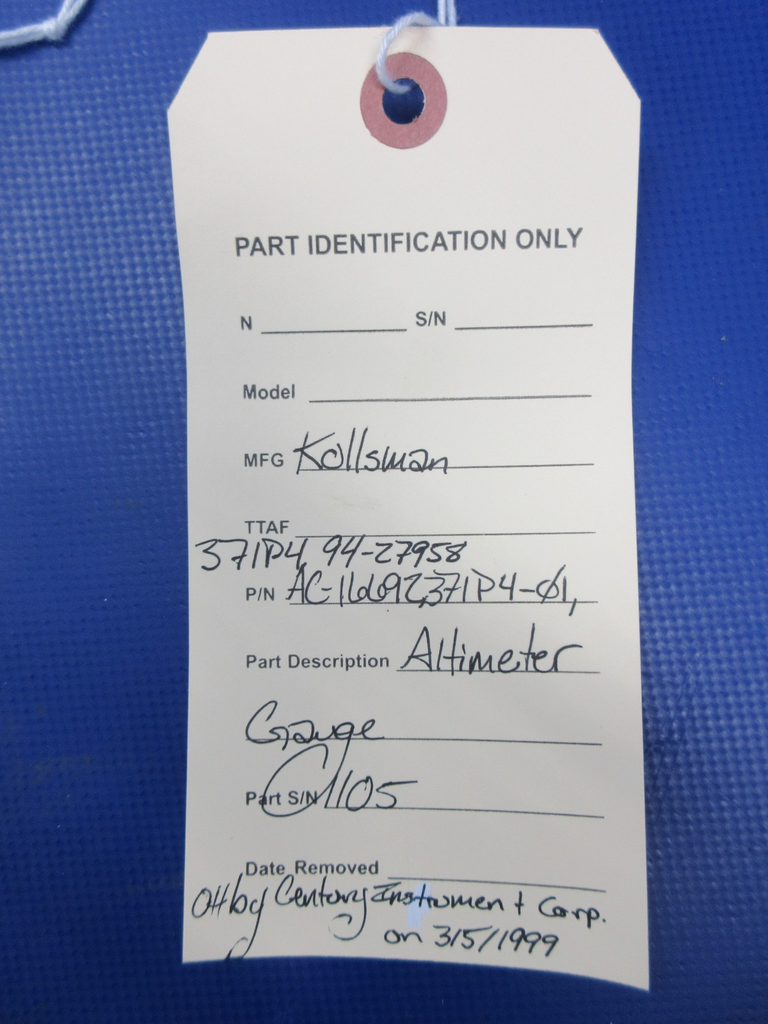 PART IDENTIFICATION ONLY
N S/N
Model
MFG Kollsman
TTAF
371P4, 94-27958
P/N AC-16692, 371P4-01,
Part Description Altimeter
Gauge
Part S/N 1105
Date Removed
OH by Century Instrument Corp.
on 3/5/1999